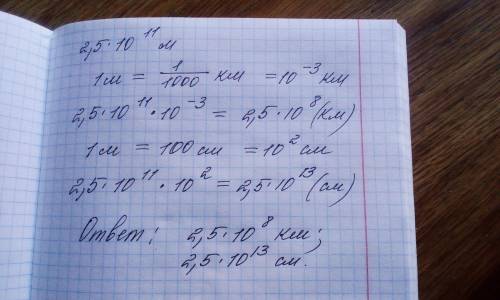 2,5·10¹¹ м
1 м = 1/1000 км = 10⁻³ км
2,5·10¹¹·10⁻³ = 2,5·10⁸ (км)
1 м = 100 см = 10² см
2,5·10¹¹·10² = 2,5·10¹³ (см)
Ответ: 2,5·10⁸ км;
2,5·10¹³ см.